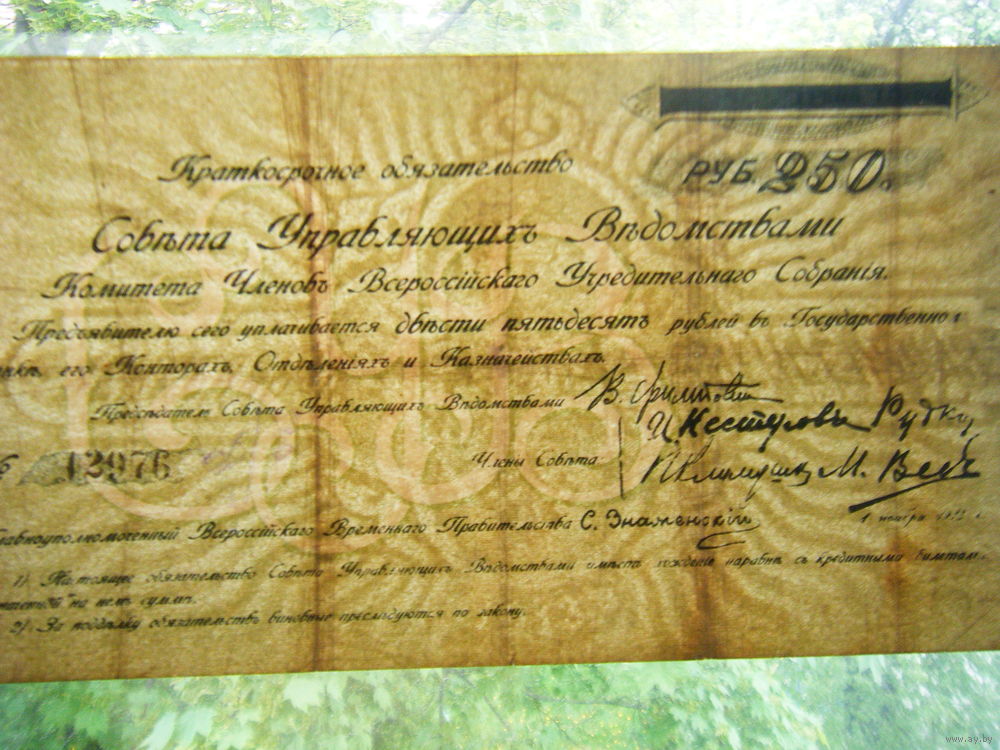 РУБ. 250.
Краткосрочное обязательство
Совѣта Управляющихъ Вѣдомствами
Комитета Членовъ Всероссійскаго Учредительнаго Собранія.
Предъявителю сего уплачивается двѣсти пятьдесятъ рублей въ Государственно
его Конторахъ, Отдѣленіяхъ и Казначействахъ.
Предсѣдатель Совѣта Управляющихъ Вѣдомствами
Нестуровъ
12976 Члены Совѣта: М. Веде
Всероссійскаго Временнаго Правительства С. Знаменскій
1 ноября
1). Настоящее обязательство Совѣта Управляющихъ Вѣдомствами имѣетъ хожденіе наравнѣ съ кредитными
на немъ сумм.
2). За поддѣлку обязательствъ виновные преслѣдуются по закону.
www.ay.by